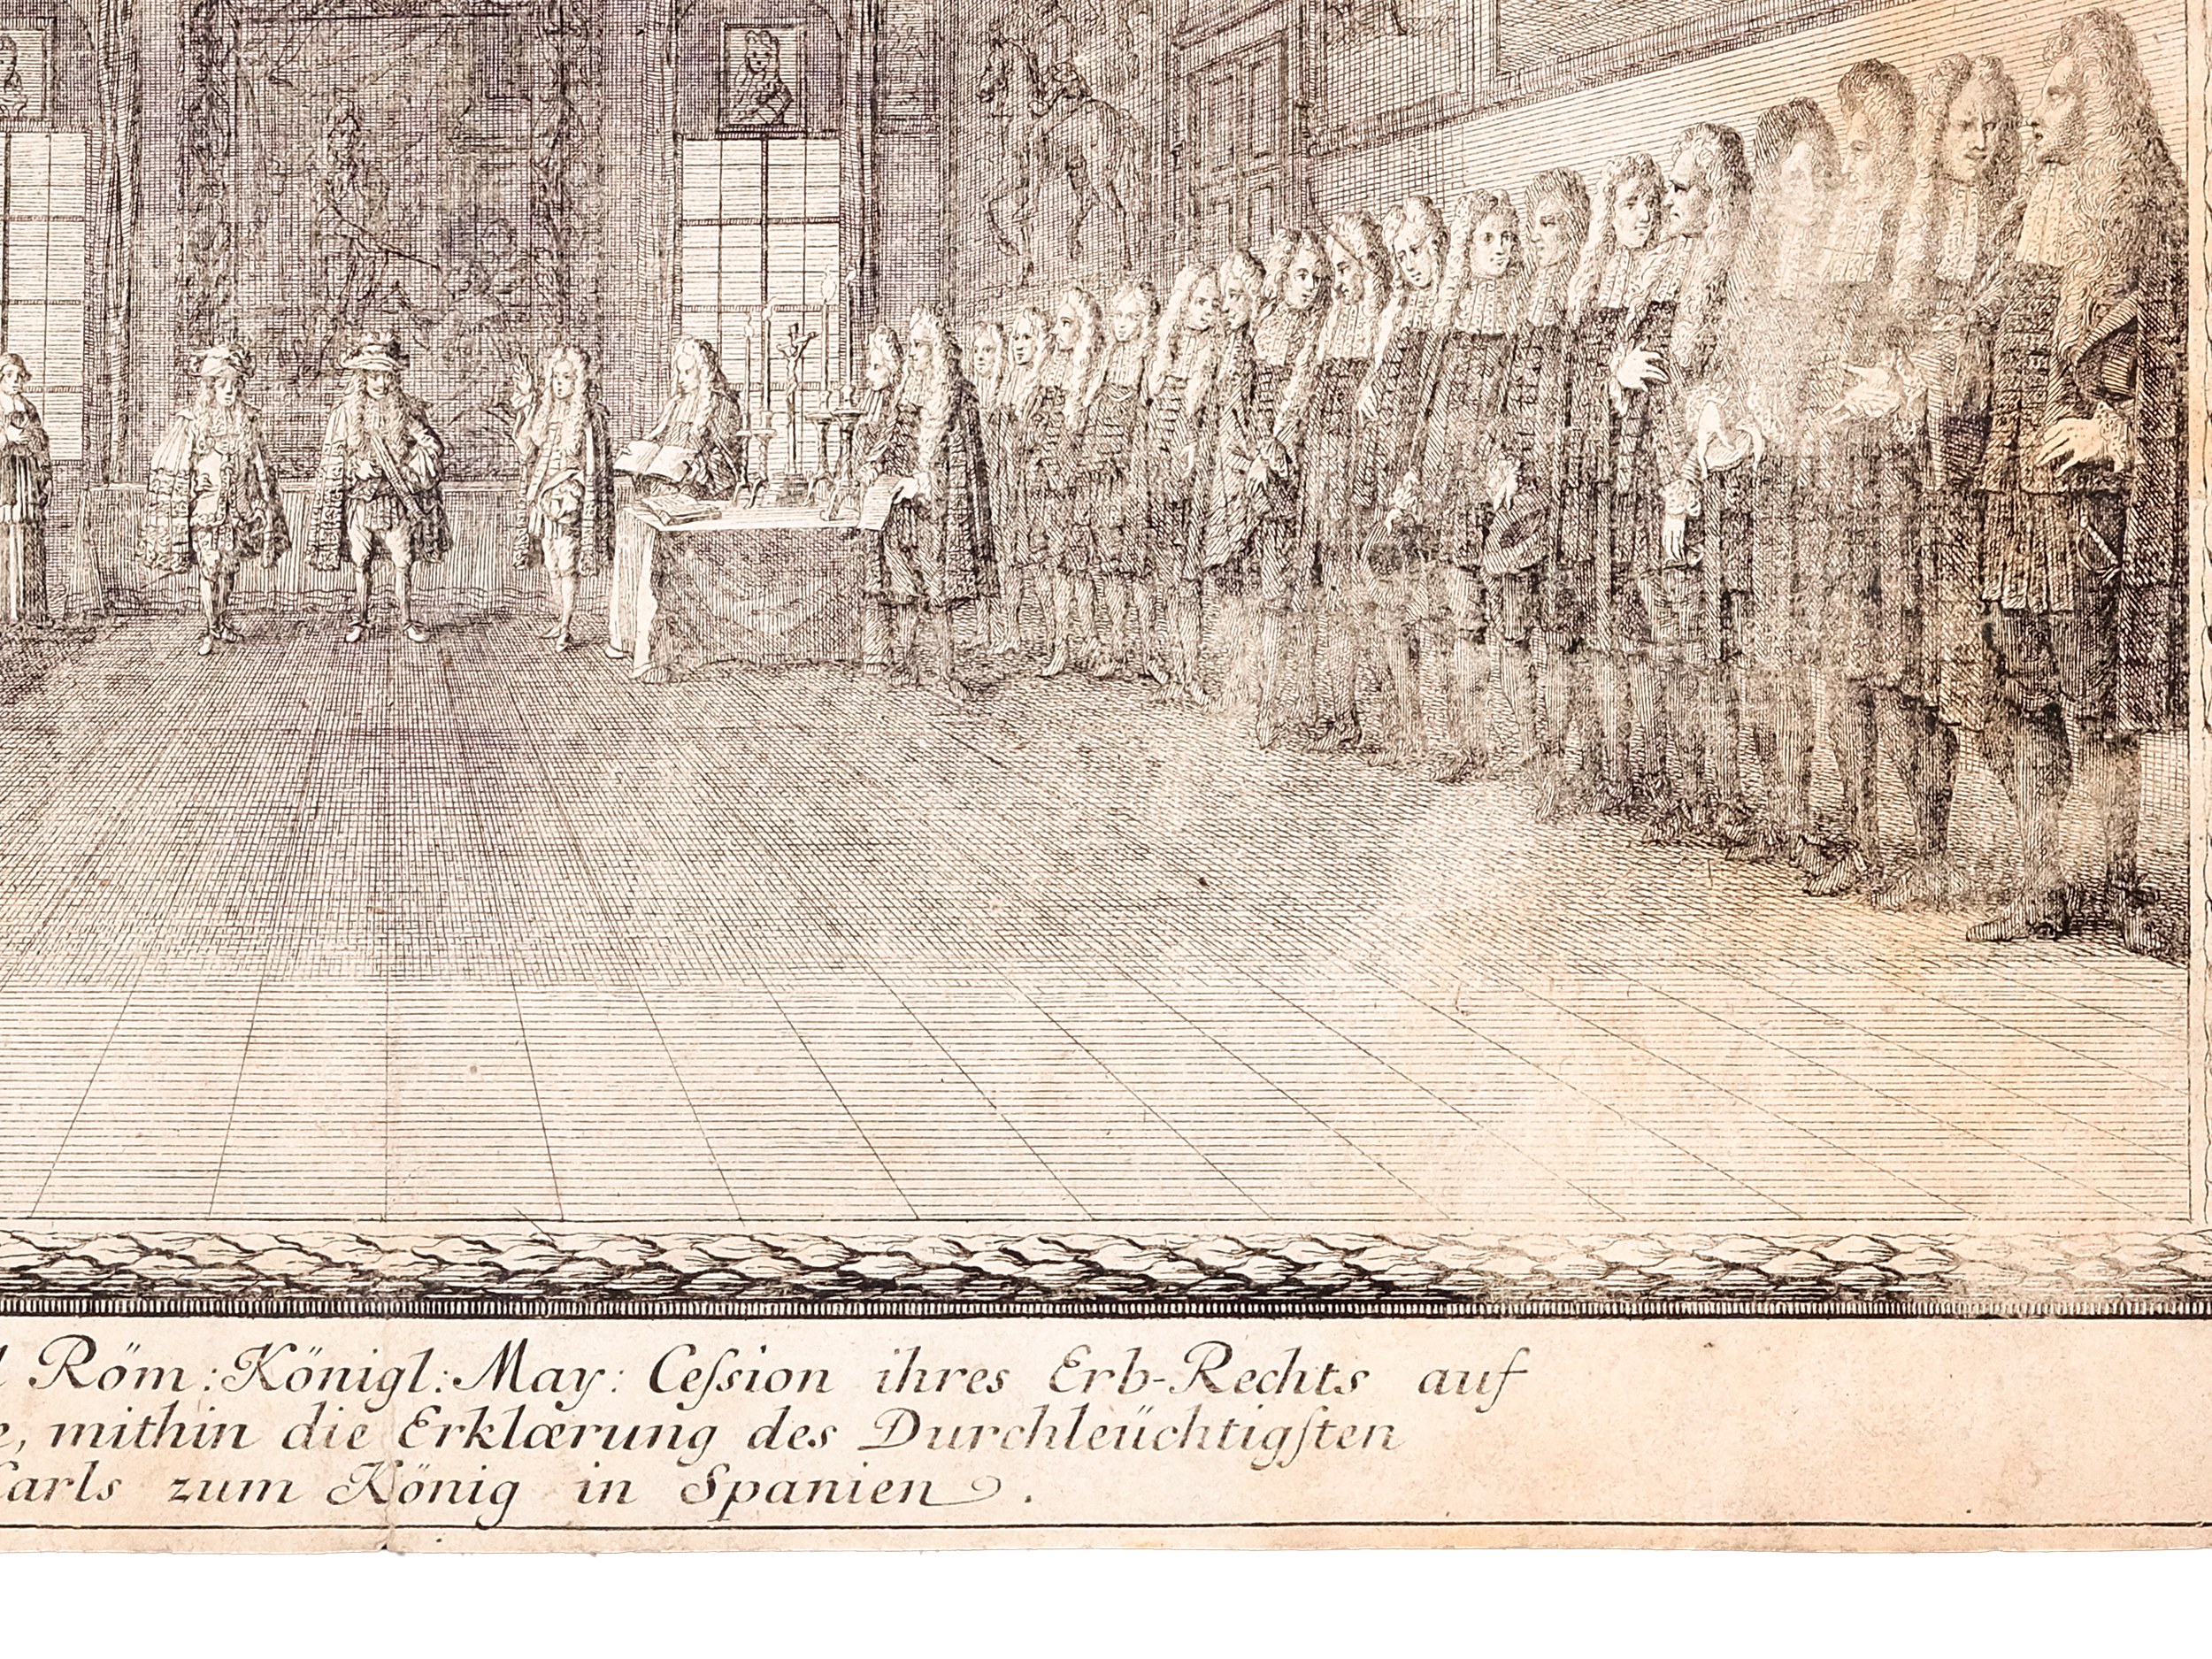 Röm: Königl: May: Ceſsion ihres Erb-Rechts auf
, mithin die Erklærung des Durchleüchtigſten
Carls zum König in Spanien.